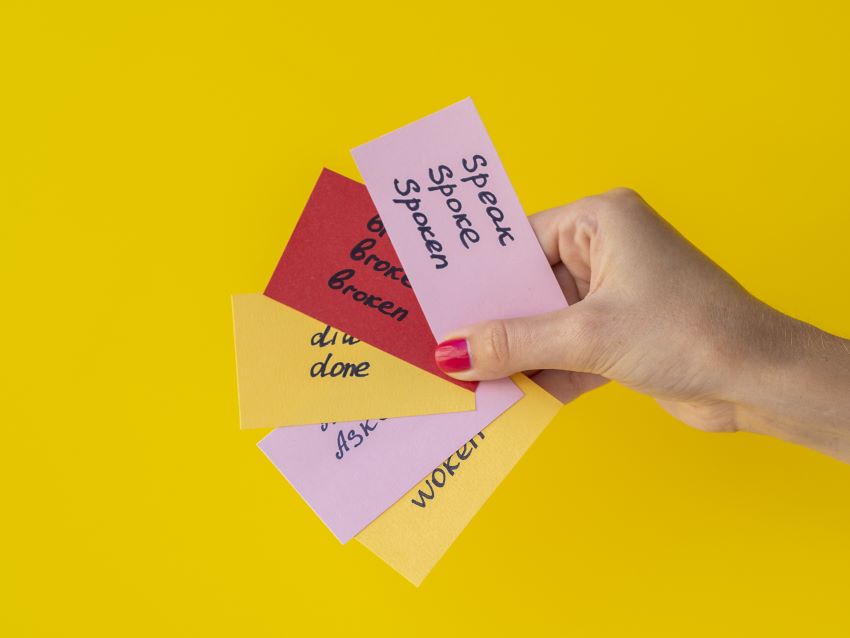 Speak
Spoke
Spoken
broke
broken
did
done
woken